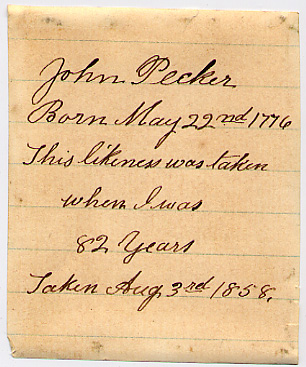 John Pecker
Born May 22nd 1776
This likeness was taken
when I was
82 Years
Taken Aug 3rd 1858.